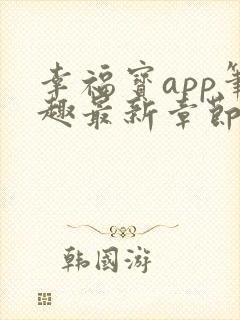 幸福宝app笔
趣最新章节
韩国游